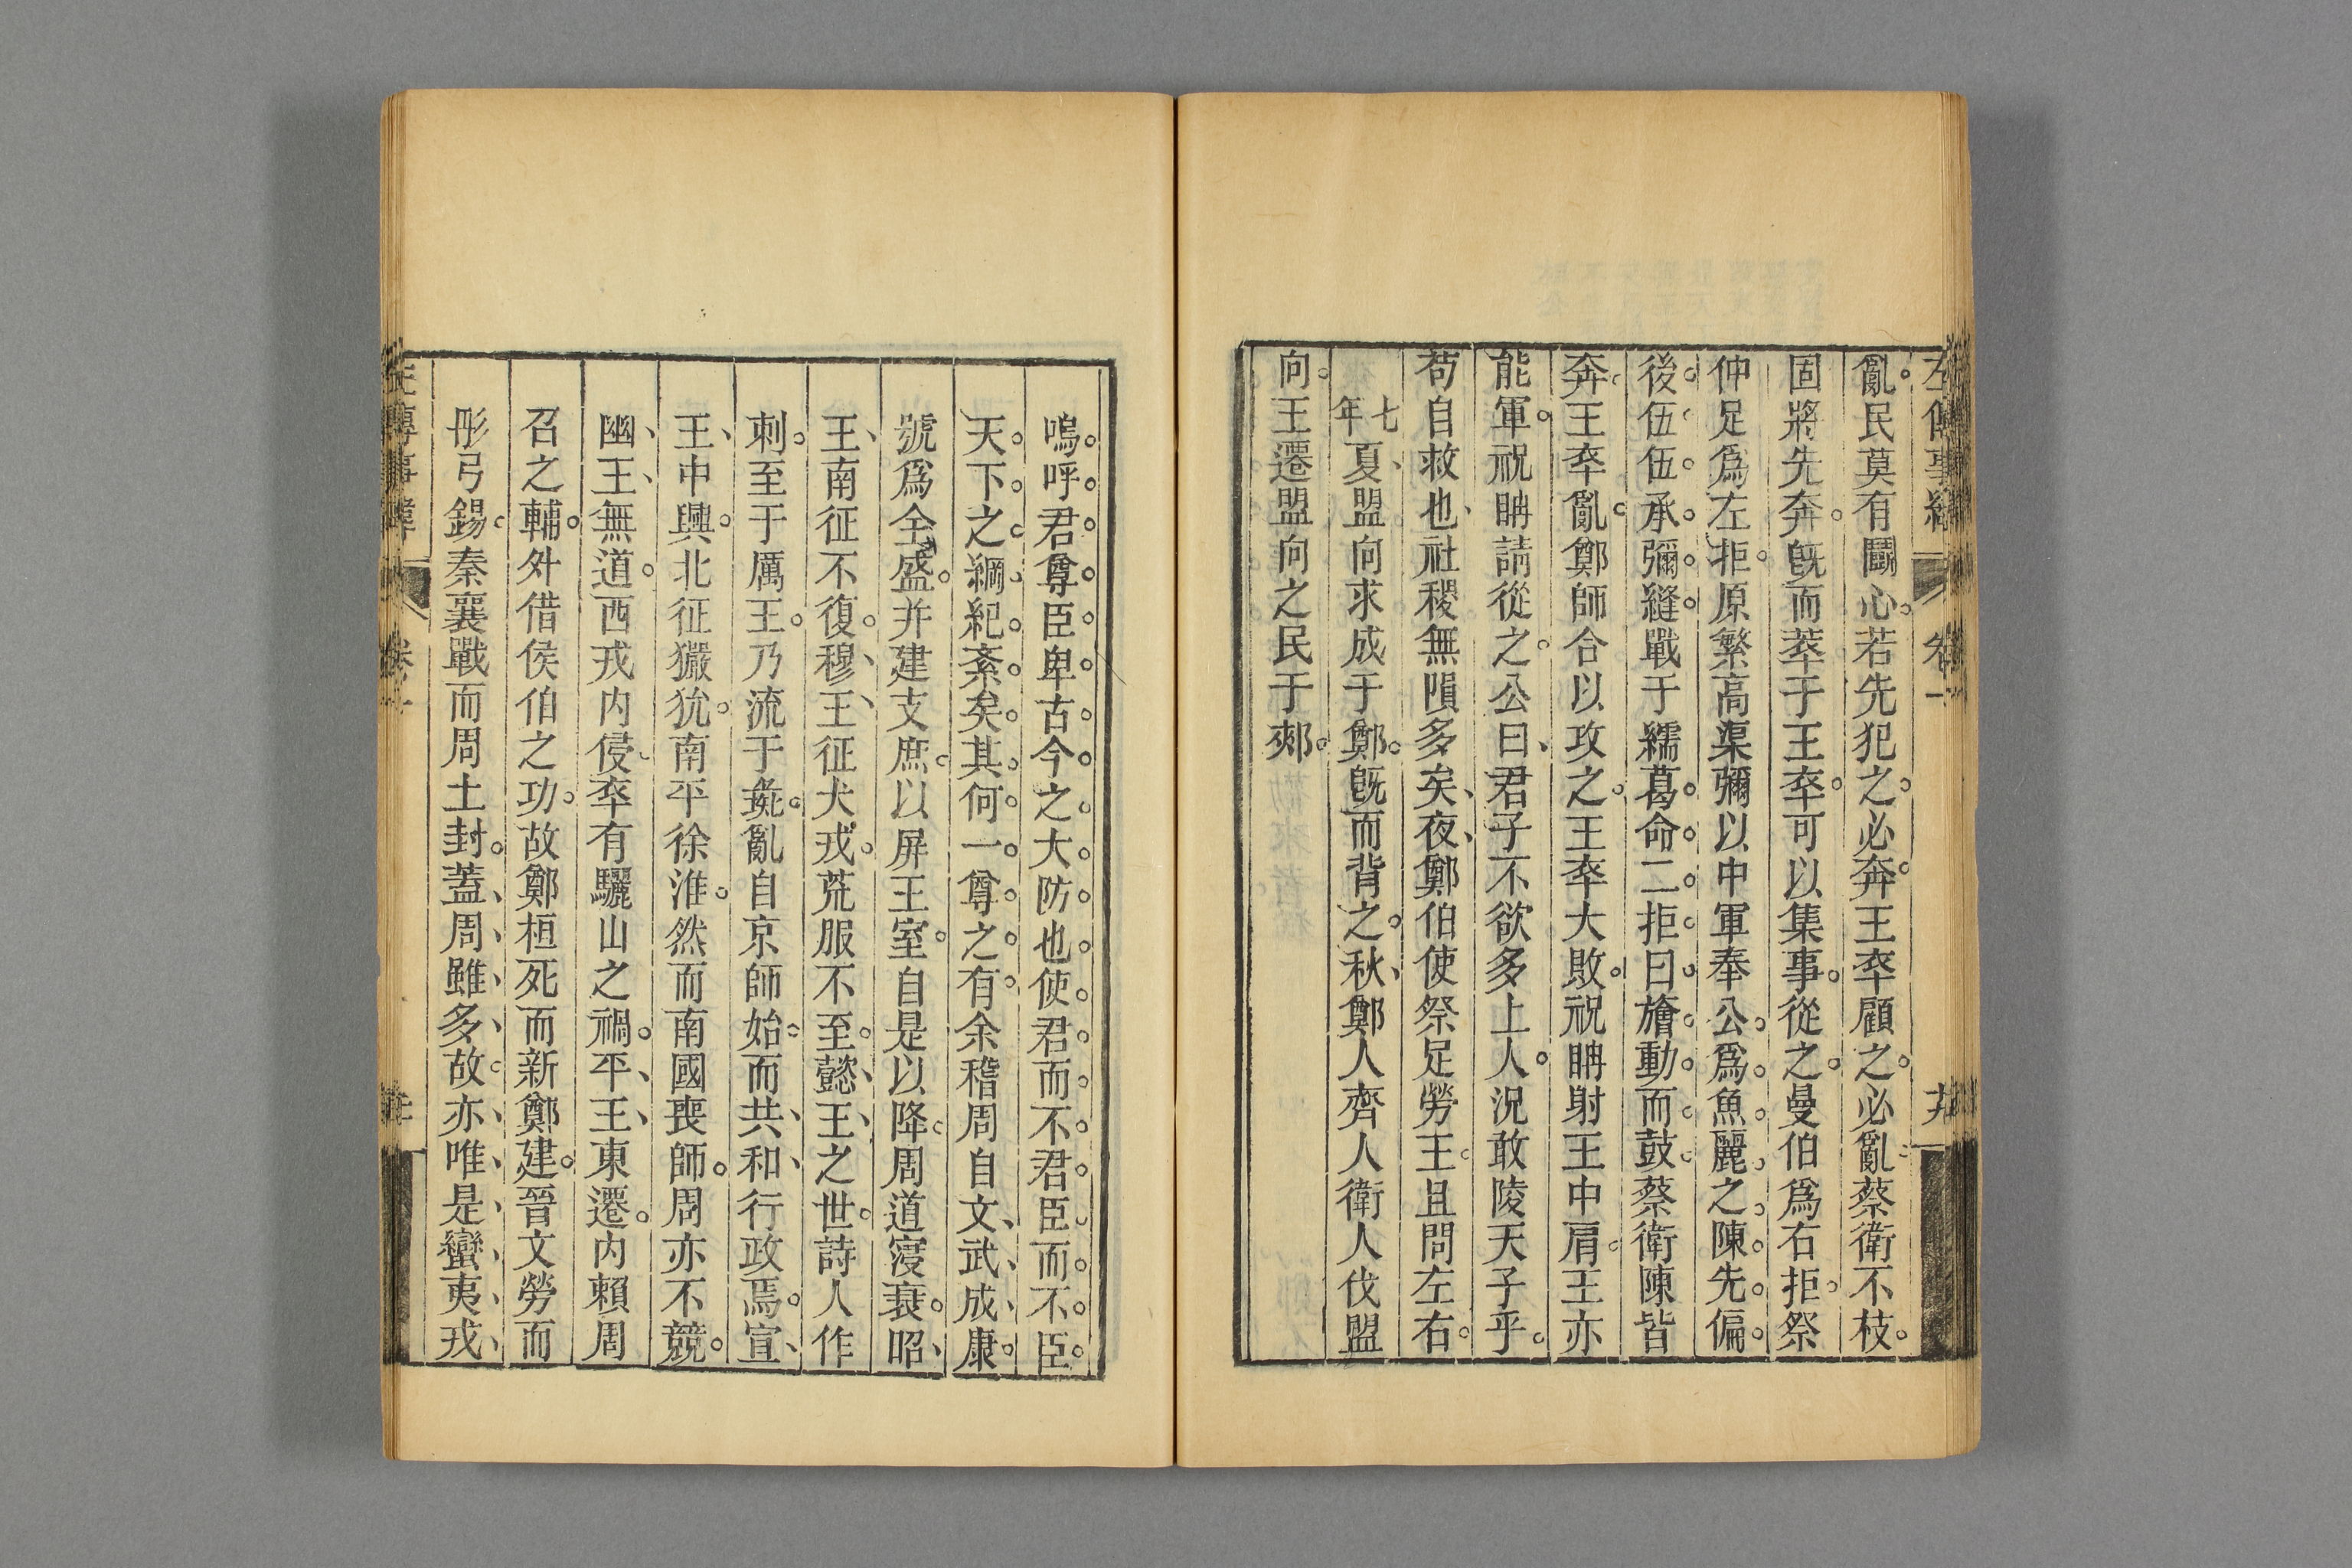 亂民莫有鬭心若先犯之必奔王卒顧之必亂蔡衛不枝
固將先奔旣而萃于王卒可以集事從之曼伯爲右拒祭
仲足爲左拒原繁高渠彌以中軍奉公爲魚麗之陳先偏
後伍伍承彌縫戰于繻葛命二拒曰旝動而鼓蔡衛陳皆
奔王卒亂鄭師合以攻之王卒大敗祝聃射王中肩王亦
能軍祝聃請從之公曰君子不欲多上人況敢陵天子乎
苟自救也社稷無隕多矣夜鄭伯使祭足勞王且問左右
七年夏盟向求成于鄭旣而背之秋鄭人齊人衛人伐盟
向王遷盟向之民于郟
嗚呼君尊臣卑古今之大防也使君而不君臣而不臣
天下之綱紀紊矣其何一尊之有余稽周自文武成康
號爲全盛并建支庶以屏王室自是以降周道寖衰昭
王南征不復穆王征犬戎荒服不至懿王之世詩人作
刺至于厲王乃流于彘亂自京師始而共和行政焉宣
王中興北征玁狁南平徐淮然而南國喪師周亦不競
幽王無道西戎内侵卒有驪山之禍平王東遷内賴周
召之輔外借侯伯之功故鄭桓死而新鄭建晉文勞而
彤弓錫秦襄戰而周土封蓋周雖多故亦唯是蠻夷戎